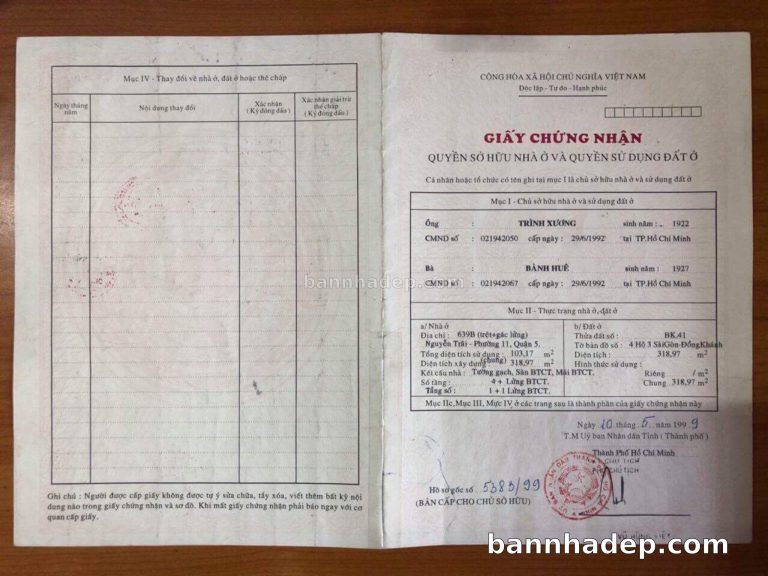 Mục IV - Thay đổi về nhà ở, đất ở hoặc thế chấp
Ngày tháng năm
Nội dung thay đổi
Xác nhận
( Ký đóng dấu )
Xác nhận giải trừ thế chấp
( Ký đóng dấu )
Ghi chú : Người được cấp giấy không được tự ý sửa chữa, tẩy xóa, viết thêm bất kỳ nội
dung nào trong giấy chứng nhận và sơ đồ. Khi mất giấy chứng nhận phải báo ngay với cơ
quan cấp giấy.
CỘNG HÒA XÃ HỘI CHỦ NGHĨA VIỆT NAM
Độc lập - Tự do - Hạnh phúc
GIẤY CHỨNG NHẬN
QUYỀN SỞ HỮU NHÀ Ở VÀ QUYỀN SỬ DỤNG ĐẤT Ở
Cá nhân hoặc tổ chức có tên ghi tại mục I là chủ sở hữu nhà ở và sử dụng đất ở
Mục I - Chủ sở hữu nhà ở và sử dụng đất ở
Ông : TRÌNH XƯƠNG sinh năm : 1922
CMND số : 021942050 cấp ngày : 29/6/1992 tại TP.Hồ Chí Minh
Bà : BÀNH HUÊ sinh năm : 1927
CMND số : 021942067 cấp ngày : 29/6/1992 tại TP.Hồ Chí Minh
Mục II - Thực trạng nhà ở, đất ở
a/ Nhà ở
Địa chỉ : 639B (trệt+gác lửng)
Nguyễn Trãi - Phường 11, Quận 5.
Tổng diện tích sử dụng : 103,17 m2
(chung)
Diện tích xây dựng : 318,97 m2
Kết cấu nhà : Tường gạch, Sàn BTCT, Mái BTCT.
Số tầng : 4 + 1 Lửng BTCT.
Tầng số : 1 + 1 Lửng BTCT.
b/ Đất ở
Thửa đất số : BK.41
Tờ bản đồ số : 4 Hộ 3 SàiGòn-ĐồngKhánh
Diện tích : 318,97 m2
Hình thức sử dụng :
Riêng : / m2
Chung : 318,97 m2
Mục IIc, Mục III, Mục IV ở các trang sau là thành phần của giấy chứng nhận này
Ngày 10 tháng 5 năm 1999
T.M Uỷ ban Nhân dân Tỉnh ( Thành phố )
Thành Phố Hồ Chí Minh
PHÓ CHỦ TỊCH
Hồ sơ gốc số 5383/99
(BẢN CẤP CHO CHỦ SỞ HỮU)
VŨ HÙNG VIỆT
bannhadep.com
bannhadep.com